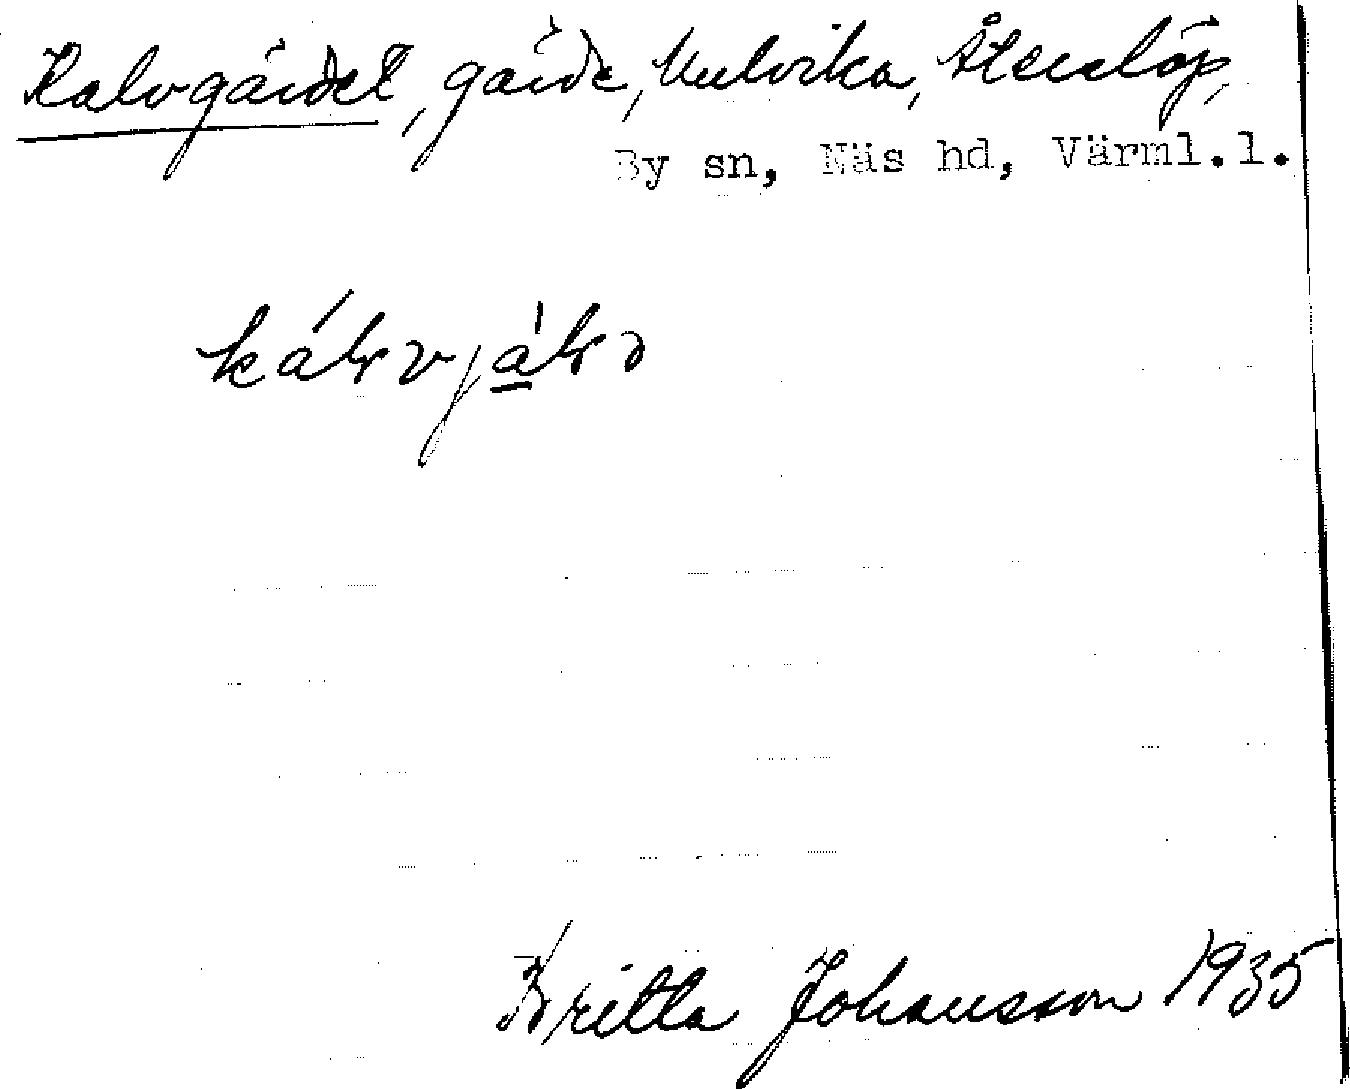 Kalvgärdet, gärde, Mulvika, Återlöp,
By sn, Näs hd, Värml.l.
Britta Johansson 1935